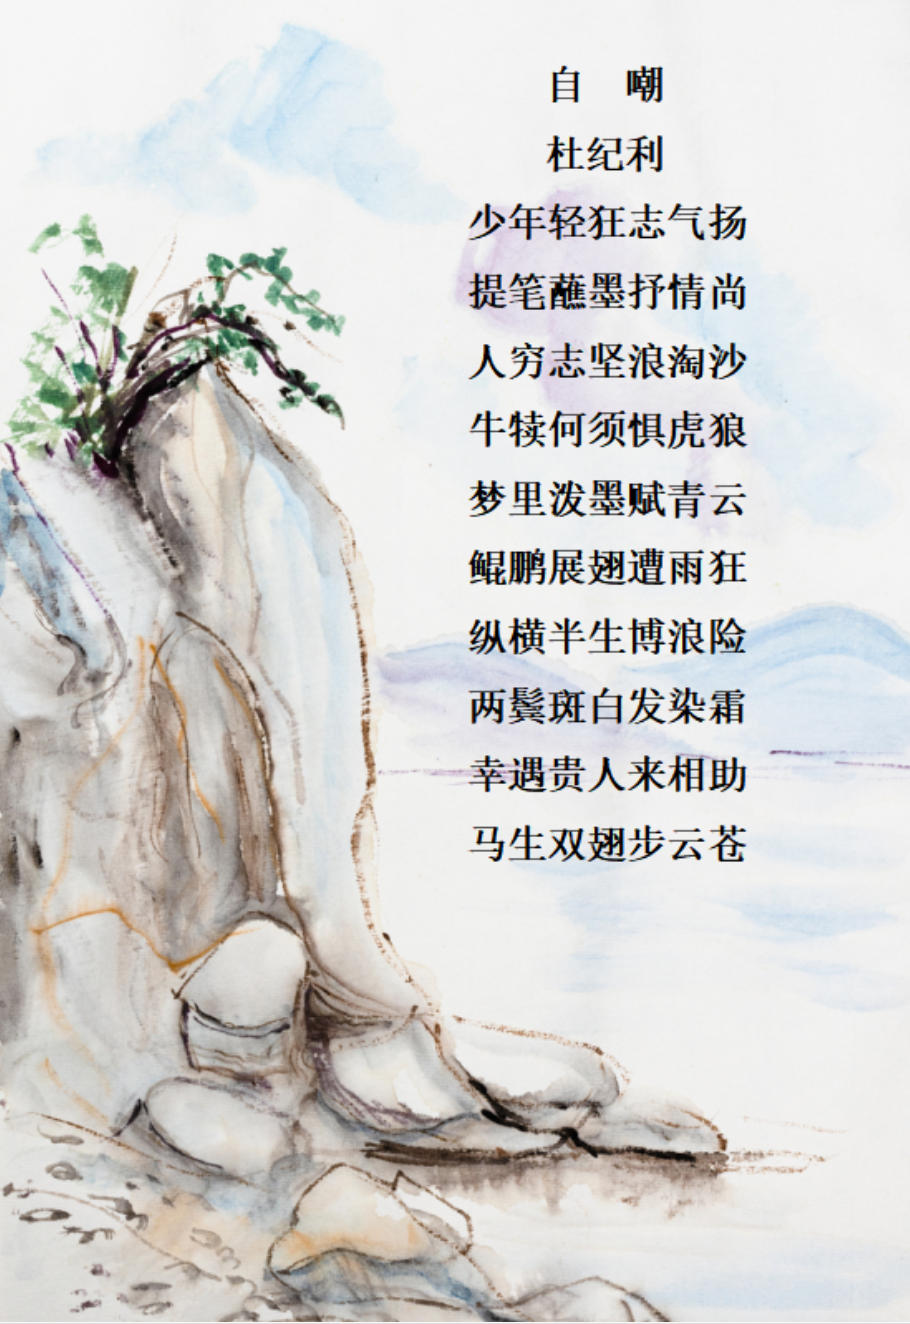 自 嘲
杜纪利
少年轻狂志气扬
提笔蘸墨抒情尚
人穷志坚浪淘沙
牛犊何须惧虎狼
梦里泼墨赋青云
鲲鹏展翅遭雨狂
纵横半生博浪险
两鬓斑白发染霜
幸遇贵人来相助
马生双翅步云苍